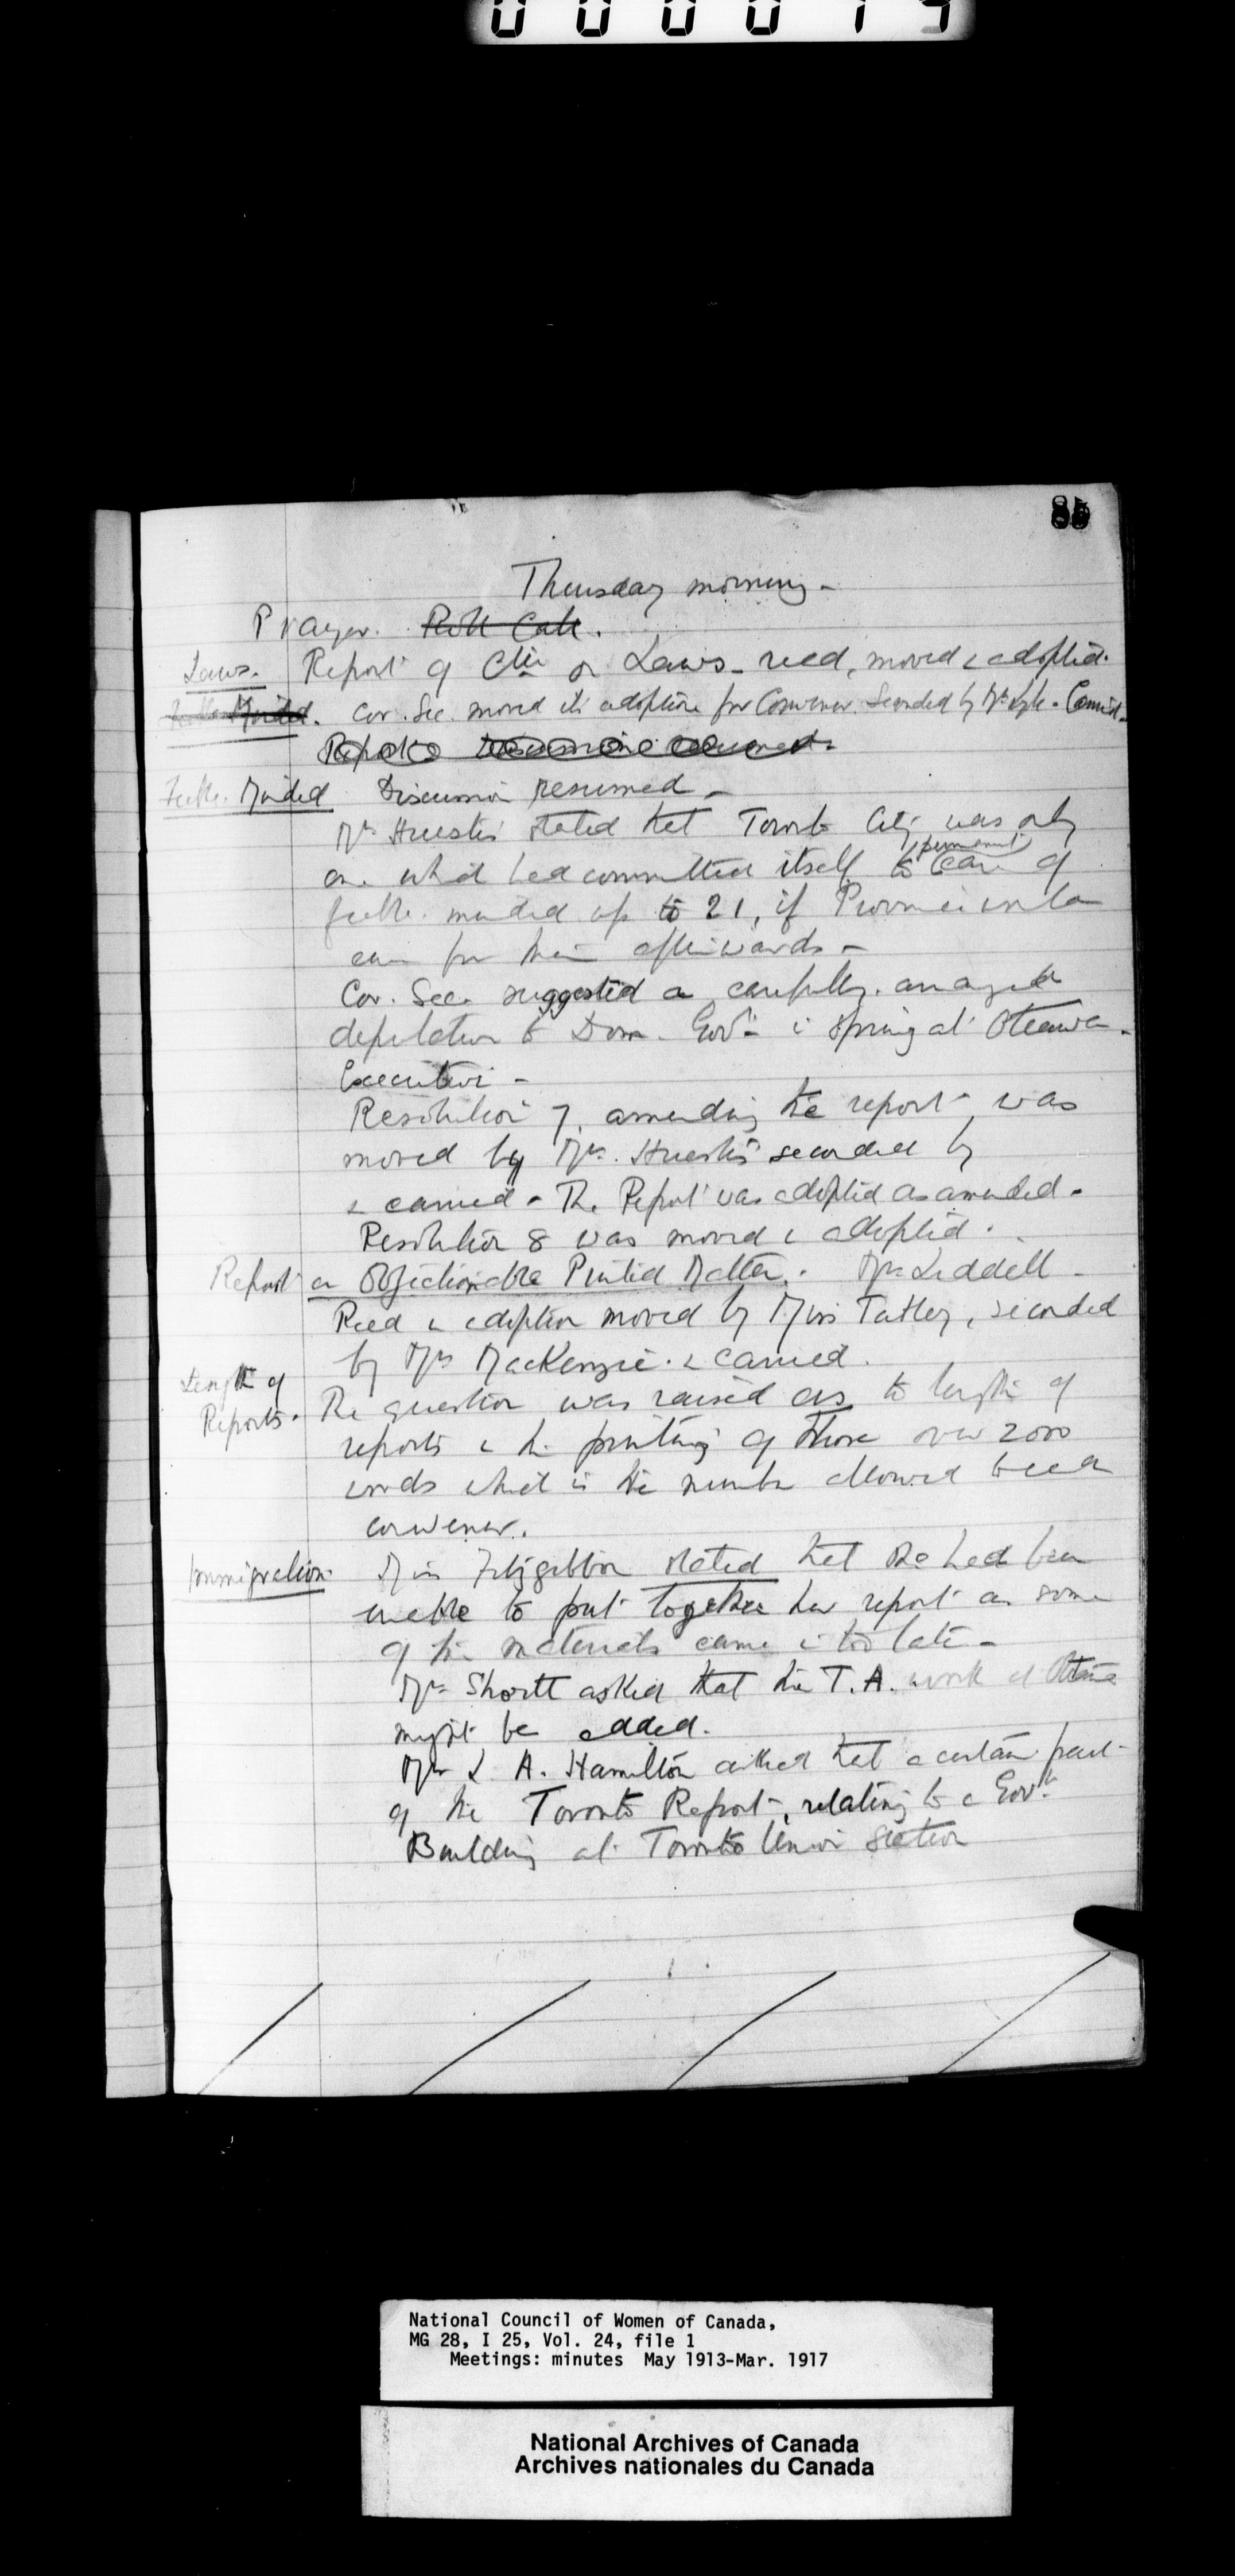 000019
85
Thursday morning -
Prayer. Roll Call.
Laws. Report of Ctte on Laws - read, moved & adopted.
Feeble Minded. Cor. Sec. moved its adoption for Convener. Seconded by Carried.
Report
Feeble Minded Discussion resumed -
Mrs Huestis stated that Toronto City was only
one which had committed itself to permanent care of
feeble minded up to 21, if Province
care for them afterwards -
Cor. Sec. suggested a carefully arranged
deputation to Dom. Govt in Spring at Ottawa.
Executive -
Resolution 7, amending the report, was
moved by Mrs. Huestis seconded by
& carried - The Report was adopted as amended -
Resolution 8 was moved & adopted.
Report on Objectionable Printed Matter. Mrs Liddell -
Read & adoption moved by Miss Tatley, seconded
by Mrs MacKenzie & carried.
Length of
Reports. The question was raised as to length of
reports & the printing of those over 2000
words which is the number allowed to each
convener.
Immigration Miss Fitzgibbon stated that she had been
unable to put together her report as some
of the materials came in too late -
Mrs Shortt asked that the T.A. work at Ottawa
might be added.
Mrs L. A. Hamilton asked that a certain part
of the Toronto Report, relating to a Govt.
Building at Toronto Union Station
National Council of Women of Canada,
MG 28, I 25, Vol. 24, file 1
Meetings: minutes May 1913-Mar. 1917
National Archives of Canada
Archives nationales du Canada